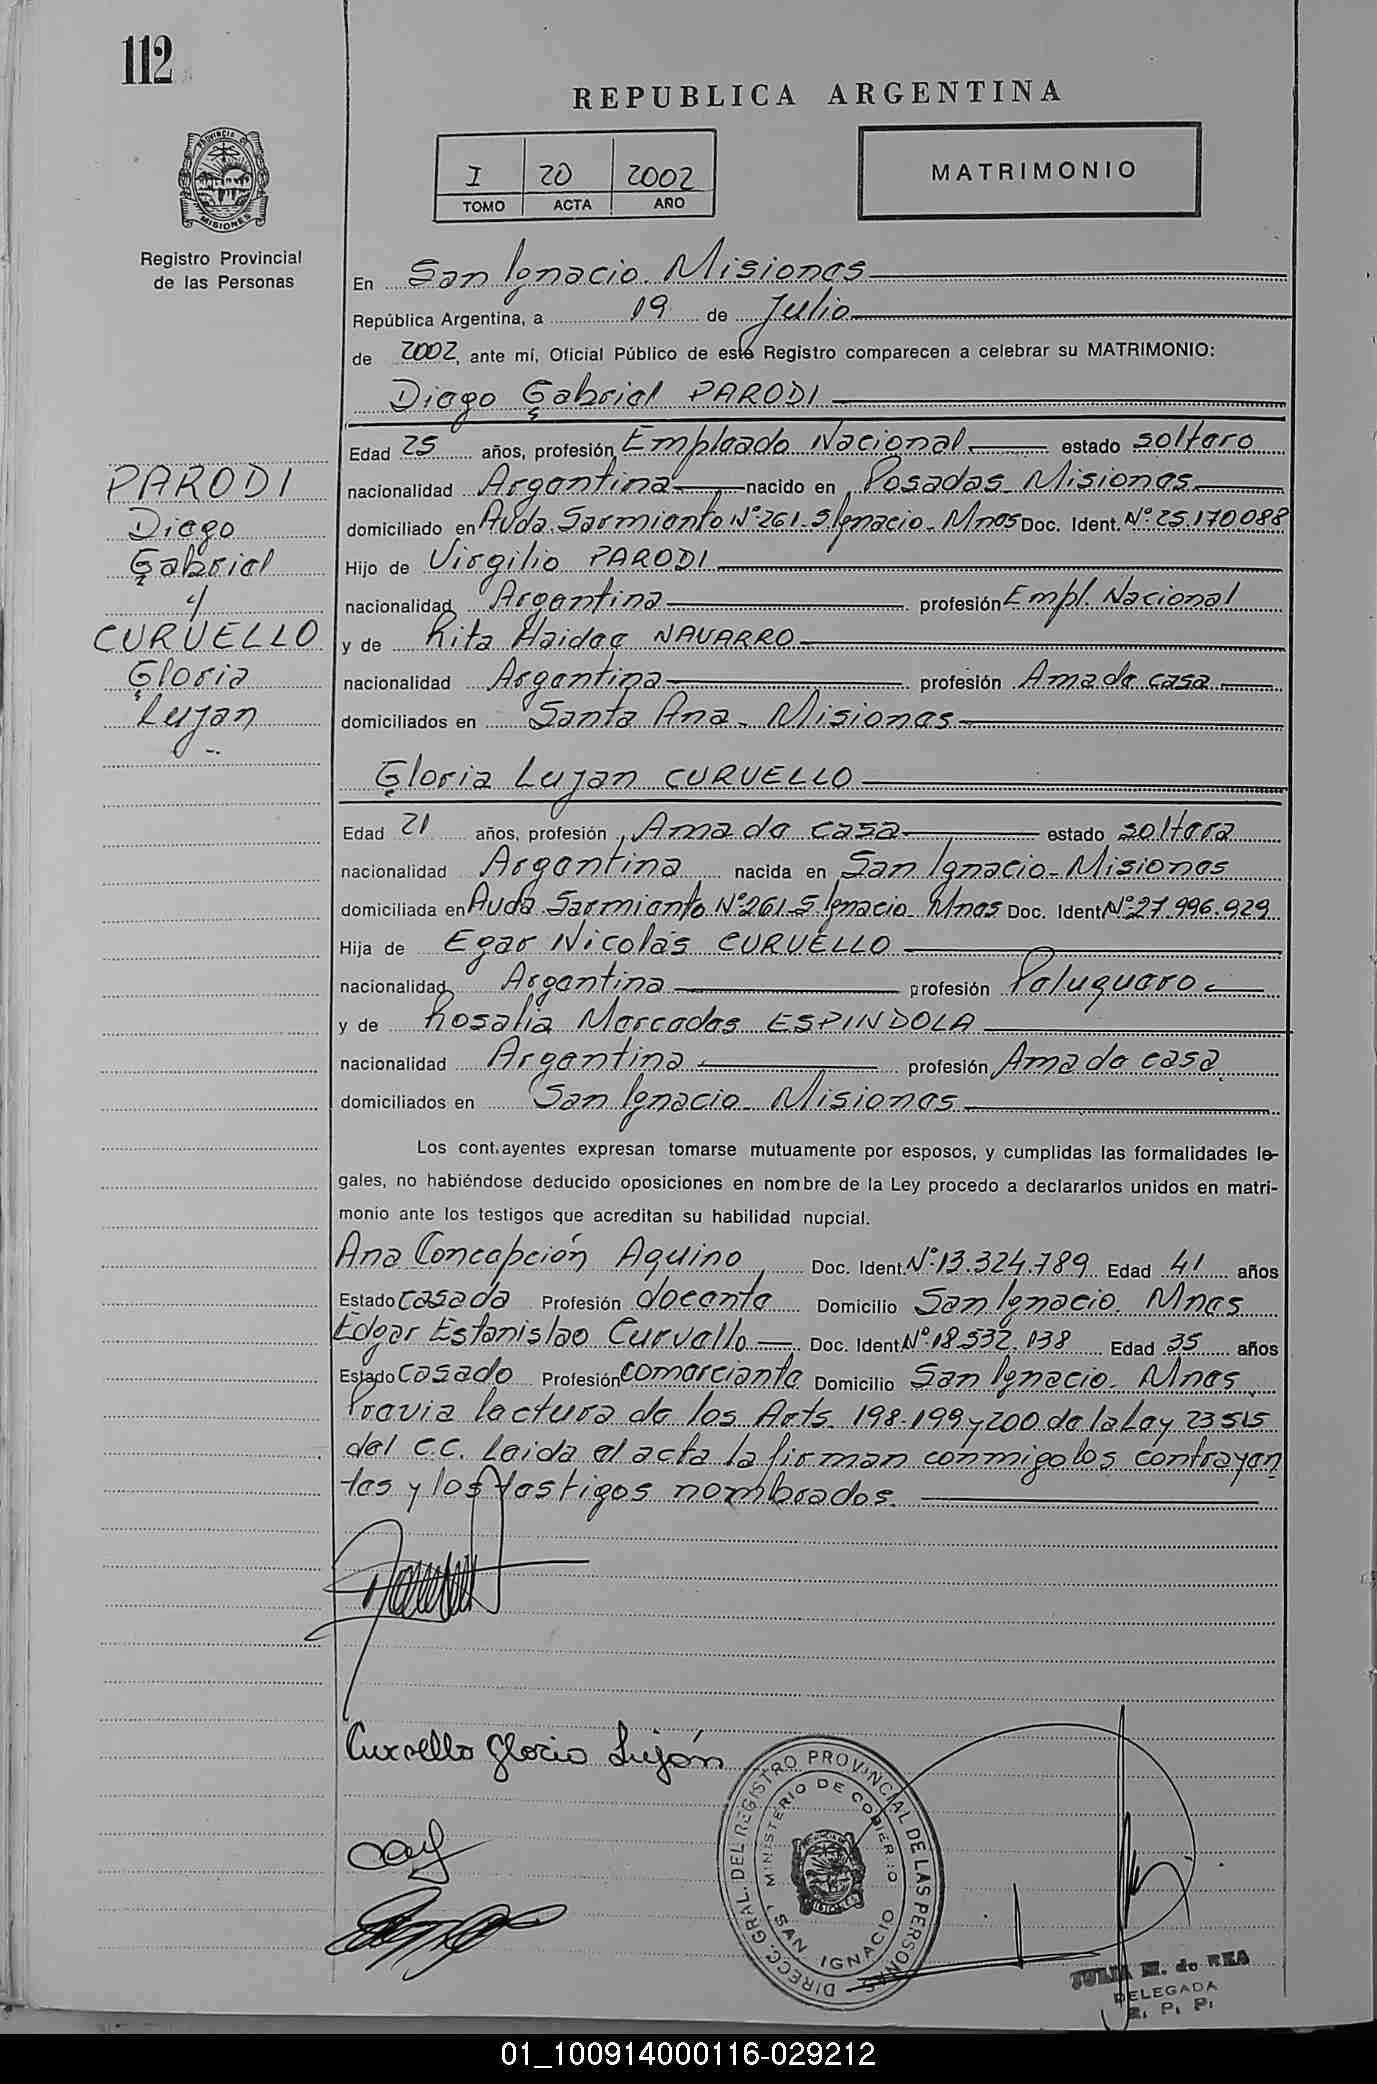 112
REPUBLICA ARGENTINA
I 20 2002
TOMO ACTA AÑO
MATRIMONIO
PROVINCIA D
MISIONES
Registro Provincial
de las Personas
En San Ignacio. Misiones
República Argentina, a 19 de Julio
de 2002, ante mí, Oficial Público de este Registro comparecen a celebrar su MATRIMONIO:
Diego Gabriel PARODI
Edad 25 años, profesión Empleado Nacional estado soltero
nacionalidad Argentina nacido en Posadas Misiones
domiciliado en Avda. Sarmiento Nº 261-S. Ignacio-Mnes Doc. Ident. Nº 25.170.088
Hijo de Virgilio PARODI
nacionalidad Argentina profesión Empl. Nacional
y de Rita Haidee NAVARRO
nacionalidad Argentina profesión Ama de casa
domiciliados en Santa Ana - Misiones
PARODI
Diego
Gabriel
y
CURVELLO
Gloria
Lujan
Gloria Lujan CURVELLO
Edad 21 años, profesión Ama de casa estado soltera
nacionalidad Argentina nacida en San Ignacio-Misiones
domiciliada en Avda. Sarmiento Nº 261-S Ignacio Mnes Doc. Ident Nº 27.996.929
Hija de Egar Nicolás CURVELLO
nacionalidad Argentina profesión Peluquero
y de Rosalia Mercedes ESPINDOLA
nacionalidad Argentina profesión Ama de casa
domiciliados en San Ignacio - Misiones
Los contrayentes expresan tomarse mutuamente por esposos, y cumplidas las formalidades le-
gales, no habiéndose deducido oposiciones en nombre de la Ley procedo a declararlos unidos en matri-
monio ante los testigos que acreditan su habilidad nupcial.
Ana Concepción Aquino Doc. Ident. Nº 13.324.789 Edad 41 años
Estado casada Profesión docente Domicilio San Ignacio. Mnes
Edgar Estanislao Curvello Doc. Ident Nº 18.532.138 Edad 35 años
Estado casado Profesión comerciante Domicilio San Ignacio - Mnes
Previa lectura de los Arts. 198-199 y 200 de la Ley 23515
del C.C. Leida el acta la firman conmigo los contrayen
tes y los testigos nombrados.
Curvello Gloria Luján
DIRECC. GRAL. DEL REGISTRO PROVINCIAL DE LAS PERSONAS
MINISTERIO DE GOBIERNO
SAN IGNACIO
JULIA M. de REA
DELEGADA
R. P. P.
01_100914000116-029212